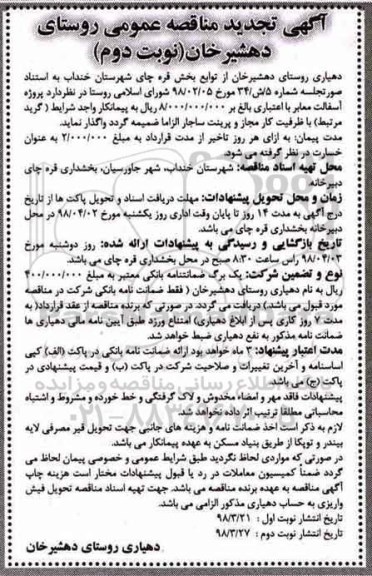 آگهی تجدید مناقصه عمومی روستای
دهشیرخان(نوبت دوم)
دهیاری روستای دهشیرخان از توابع بخش قره چای شهرستان خنداب به استناد
صورتجلسه شماره ۵/ش/۳۴ مورخ ۹۸/۰۲/۰۵ شورای اسلامی روستا در نظردارد پروژه
آسفالت معابر با اعتباری بالغ بر ۸/۰۰۰/۰۰۰/۰۰۰ ریال به پیمانکار واجد شرایط ( گرید
مرتبط) با ظرفیت کار مجاز و پرینت ساجار الزاما ضمیمه گردد واگذار نماید.
مدت پیمان: به ازای هر روز تاخیر از مدت قرارداد به مبلغ ۲/۰۰۰/۰۰۰ به عنوان
خسارت در نظر گرفته می شود.
محل تهیه اسناد مناقصه: شهرستان خنداب، شهر جاورسیان، بخشداری قره چای
دبیرخانه
زمان و محل تحویل پیشنهادات: مهلت دریافت اسناد و تحویل پاکت ها از تاریخ
درج آگهی به مدت ۱۴ روز تا پایان وقت اداری روز یکشنبه مورخ ۹۸/۰۴/۰۲ در محل
دبیرخانه بخشداری قره چای می باشد.
تاریخ بازگشایی و رسیدگی به پیشنهادات ارائه شده: روز دوشنبه مورخ
۹۸/۰۴/۰۳ راس ساعت ۸:۳۰ صبح در محل بخشداری قره چای می باشد.
نوع و تضمین شرکت: یک برگ ضمانتنامه بانکی معتبر به مبلغ ۴۰۰/۰۰۰/۰۰۰
ریال به نام دهیاری روستای دهشیرخان ( فقط ضمانت نامه بانکی شرکت در مناقصه
مورد قبول می باشد) دریافت می گردد. در صورتی که برنده مناقصه از عقد قرارداد( به
مدت ۷ روز کاری پس از ابلاغ دهیاری) امتناع ورزد طبق آیین نامه مالی دهیاری ها
ضمانت نامه مذکور به نفع دهیاری ضبط خواهد شد.
مدت اعتبار پیشنهاد: ۳ ماه خواهد بود ارائه ضمانت نامه بانکی در پاکت (الف) کپی
اساسنامه و آخرین تغییرات و صلاحیت شرکت در پاکت (ب) و قیمت پیشنهادی در
پاکت (ج) می باشد.
پیشنهادات فاقد مهر و امضاء مخدوش و لاک گرفتگی و خط خورده و مشروط و اشتباه
محاسباتی مطلقا ترتیب اثر داده نخواهد شد.
لازم به ذکر است اخذ ضمانت نامه و هزینه های جانبی جهت تحویل قیر مصرفی لایه
بیندر و توپکا از طریق بنیاد مسکن به عهده پیمانکار می باشد.
در صورتی که مواردی لحاظ نگردید طبق شرایط عمومی و خصوصی پیمان لحاظ می
گردد ضمناً کمیسیون معاملات در رد یا قبول پیشنهادات مختار است هزینه چاپ
آگهی مناقصه به عهده برنده مناقصه می باشد. جهت تهیه اسناد مناقصه تحویل فیش
واریزی به حساب دهیاری مذکور الزامی می باشد.
تاریخ انتشار نوبت اول : ۹۸/۳/۲۱
تاریخ انتشار نوبت دوم : ۹۸/۳/۲۷
دهیاری روستای دهشیرخان